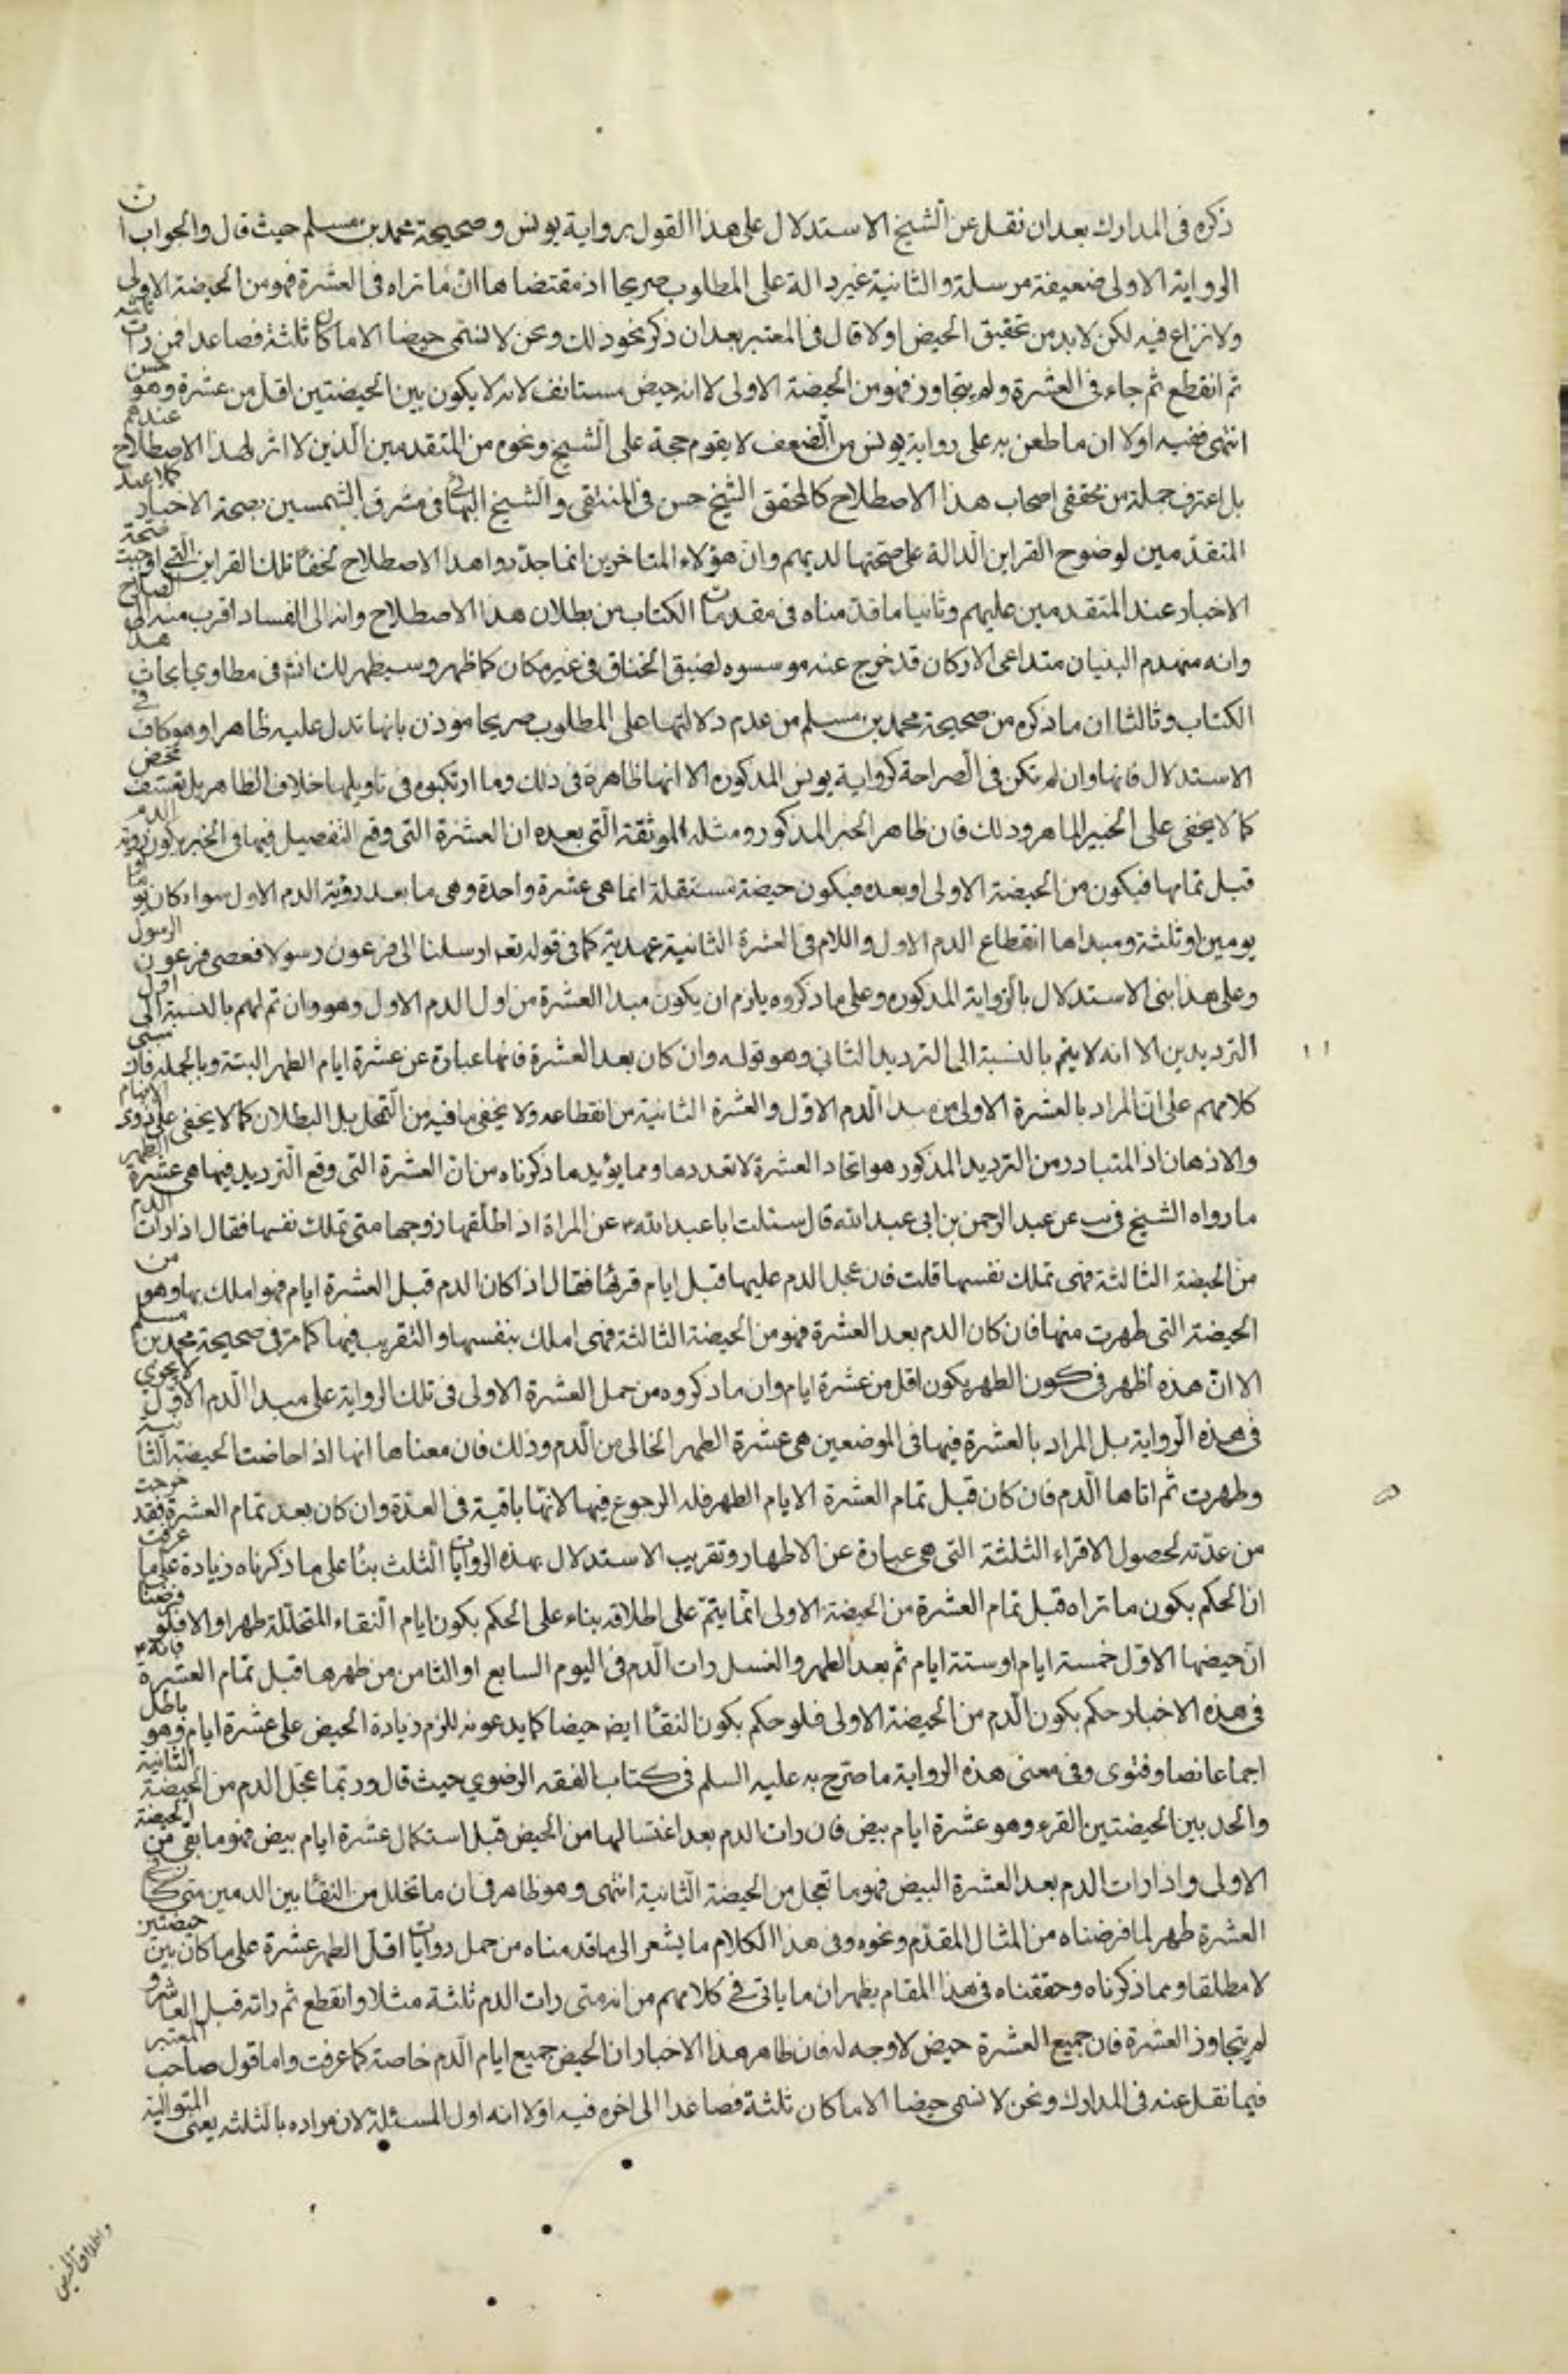 ذكره فى المدارك بعد ان نقل عن الشيخ الاستدلال على هذا القول برواية يونس وصحيحة محمد بن مسلم حيث قال والجواب ان
الرواية الاولى ضعيفة مرسلة والثانية غير دالة على المطلوب صريحا اذ مقتضاها ان ما تراه فى العشرة فهو من الحيضة الاولى
ولا نزاع فيه لكن لا بد من تحقيق الحيض اولا قال فى المعتبر بعد ان ذكر نحو ذلك ونحن لا نسمى حيضا الا ما كان ثلثة فصاعدا فمن رات ثلثة
ثم انقطع ثم جاء فى العشرة ولم يتجاوز فهو من الحيضة الاولى لا انه حيض مستانف لانه لا يكون بين الحيضتين اقل من عشرة وهو حسن
انتهى ففيه اولا ان ما طعن به على رواية يونس من الضعف لا يقوم حجة على الشيخ ونحوه من المتقدمين الذين لا اثر لهذا الاصطلاح عندهم
بل اعترف جملة من محققى اصحاب هذا الاصطلاح كالمحقق الشيخ حسن فى المنتقى والشيخ البهائى فى مشرق الشمسين بصحة الاخبار كلا عند
المتقدمين لوضوح القراين الدالة على صحتها لديهم وان هؤلاء المتاخرين انما جددوا هذا الاصطلاح لخفاء تلك القراين التى اوجبت صحة
الاخبار عند المتقدمين عليهم وثانيا ما قدمناه فى مقدمات الكتاب من بطلان هذا الاصطلاح وانه الى الفساد اقرب منه الى الصلاح
وانه منهدم البنيان متداعى الاركان قد خرج عنه مؤسسوه لضيق الخناق فى غير مكان كما ظهر وسيظهر لك انش فى مطاوي ابحاث هذا
الكتاب وثالثا ان ما ذكره من صحيحة محمد بن مسلم من عدم دلالتها على المطلوب صريحا موذن بانها تدل عليه ظاهرا وهو كاف فى
الاستدلال فانها وان لم تكن فى الصراحة كرواية يونس المذكوره الا انها ظاهرة فى ذلك وما ارتكبوه فى تاويلها خلاف الظاهر بل تعسف محض
كما لا يخفى على الخبير الماهر وذلك فان ظاهر الخبر المذكور ومثله الموثقة التى بعده ان العشرة التى وقع التفصيل فيها فى الخبر بكون رؤية الدم
قبل تمامها فيكون من الحيضة الاولى او بعده فيكون حيضة مستقلة انما هى عشرة واحدة وهى ما بعد رؤية الدم الاول سواء كان يوما او
يومين او ثلثة ومبداها انقطاع الدم الاول واللام فى العشرة الثانية عهدية كما فى قوله تعه ارسلنا الى فرعون رسولا فعصى فرعون الرسول
وعلى هذا بنى الاستدلال بالرواية المذكوره وعلى ما ذكروه يلزم ان يكون مبدا العشرة من اول الدم الاول وهو وان تم لهم بالنسبة الى اول
الترديدين الا انه لا يتم بالنسبة الى الترديد الثانى وهو قوله وان كان بعد العشرة فانها عبارة عن عشرة ايام الطهر البتة وبالجملة فان مبنى
كلامهم على ان المراد بالعشرة الاولى من مبدا الدم الاول والعشرة الثانية من انقطاعه ولا يخفى ما فيه من التمحل بل البطلان كما لا يخفى على ذوى الافهام
والاذهان اذ المتبادر من الترديد المذكور هو اتحاد العشرة لا تعددها ومما يؤيد ما ذكرناه من ان العشرة التى وقع الترديد فيها هى عشرة الطهر
ما رواه الشيخ فى يب عن عبد الرحمن بن ابى عبد الله قال سئلت ابا عبد الله ع عن المراة اذا طلقها زوجها متى تملك نفسها فقال اذا رات الدم
من الحيضة الثالثة فهى تملك نفسها قلت فان عجل الدم عليها قبل ايام قرئها فقال اذا كان الدم قبل العشرة ايام فهو املك بها وهو من
الحيضة التى طهرت منها فان كان الدم بعد العشرة فهو من الحيضة الثالثة فهى املك بنفسها والتقريب فيها كما مر فى صحيحة محمد بن مسلم
الا ان هذه اظهر فى كون الطهر يكون اقل من عشرة ايام وان ما ذكروه من حمل العشرة الاولى فى تلك الرواية على مبدا الدم الاول لا يجرى
فى هذه الرواية بل المراد بالعشرة فيها فى الموضعين هى عشرة الطهر الخالى من الدم وذلك فان معناها انها اذا حاضت الحيضة الثانية
وطهرت ثم اتاها الدم فان كان قبل تمام العشرة الايام الطهر فله الرجوع فيها لانها باقية فى العدة وان كان بعد تمام العشرة فقد خرجت
من عدته لحصول الاقراء الثلثة التى هى عبارة عن الاطهار وتقريب الاستدلال بهذه الروايات الثلث بناء على ما ذكرناه زيادة على ما عرفت
ان الحكم بكون ما تراه قبل تمام العشرة من الحيضة الاولى انما يتم على اطلاقه بناء على الحكم بكون ايام النقاء المتخللة طهرا والا فلو فرضنا
ان حيضها الاول خمسة ايام او ستة ايام ثم بعد الطهر والغسل رات الدم فى اليوم السابع او الثامن من طهرها قبل تمام العشرة فانه ع
فى هذه الاخبار حكم بكون الدم من الحيضة الاولى فلو حكم بكون النقاء ايض حيضا كما يدعونه للزم زيادة الحيض على عشرة ايام وهو باطل
اجماعا نصا وفتوى وفى معنى هذه الرواية ما صرح به عليه السلم فى كتاب الفقه الرضوي حيث قال وربما عجل الدم من الحيضة الثانية
والحد بين الحيضتين القرء وهو عشرة ايام بيض فان رات الدم بعد اغتسالها من الحيض قبل استكمال عشرة ايام بيض فهو ما بقى من الحيضة
الاولى واذا رات الدم بعد العشرة البيض فهو ما تعجل من الحيضة الثانية انتهى وهو ظاهر فى ان ما تخلل من النقاء بين الدمين متى كان فى
العشرة طهر لما فرضناه من المثال المقدم ونحوه وفى هذا الكلام ما يشعر الى ما قدمناه من حمل روايات اقل الطهر عشرة على ما كان بين حيضتين
لا مطلقا ومما ذكرناه وحققناه فى هذا المقام يظهر ان ما ياتى فى كلامهم من انه متى رات الدم ثلثة مثلا وانقطع ثم راته قبل العاشر و
لم يتجاوز العشرة فان جميع العشرة حيض لا وجه له فان ظاهر هذا الاخبار ان الحيض جميع ايام الدم خاصة كما عرفت واما قول صاحب المعتبر
فيما نقل عنه فى المدارك ونحن لا نسمى حيضا الا ما كان ثلثة فصاعدا الى اخره فيه اولا انه اول المسئلة لان مراده بالثلثه يعنى المتوالية
واطلاق الحيض